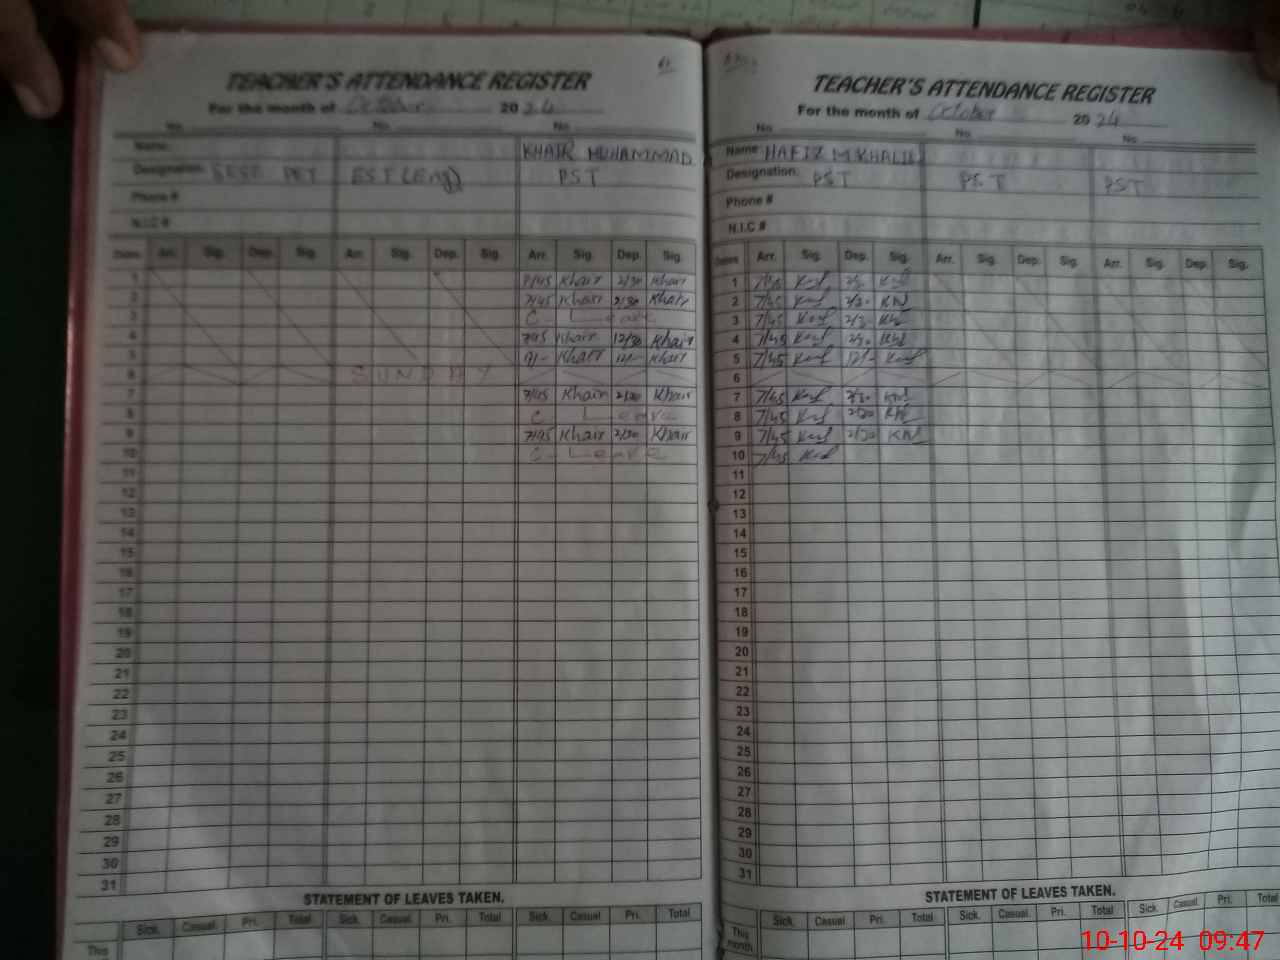 TEACHER'S ATTENDANCE REGISTER
For the month of October 2024
No. No. No.
Name: KHAIR MUHAMMAD
Designation: SESE PET EST (Eng) PST
Phone #
N.I.C #
Dates Arr. Sig. Dep. Sig. Arr. Sig. Dep. Sig. Arr. Sig. Dep. Sig.
1 7/45 Khair 2/30 Khair
2 7/45 Khair 2/30 Khair
3 C Leave
4 7/45 Khair 12/30 Khair
5 Khair 12/- Khair
6 SUNDAY
7 7/45 Khair 2/30 Khair
8 C Leave
9 7/45 Khair 2/30 Khair
10 C- Leave
11
12
13
14
15
16
17
18
19
20
21
22
23
24
25
26
27
28
29
30
31
STATEMENT OF LEAVES TAKEN.
Sick. Casual. Pri. Total Sick. Casual. Pri. Total Sick. Casual Pri. Total
This
TEACHER'S ATTENDANCE REGISTER
For the month of October 2024
No. No. No.
Name HAFIZ M KHALIL
Designation. PST PST PST
Phone #
N.I.C #
Dates Arr. Sig. Dep. Sig. Arr. Sig. Dep. Sig. Arr. Sig. Dep. Sig.
1 7/45
2 7/45 2/30
3 7/45 2/30
4 7/45
5 7/45 12/-
6
7 7/45 2/30
8 7/45 2/30
9 7/45 2/30
10 7/45
11
12
13
14
15
16
17
18
19
20
21
22
23
24
25
26
27
28
29
30
31
STATEMENT OF LEAVES TAKEN.
Sick. Casual Pri. Total Sick. Casual. Pri. Total Sick. Casual. Pri. Total
This month
10-10-24 09:47